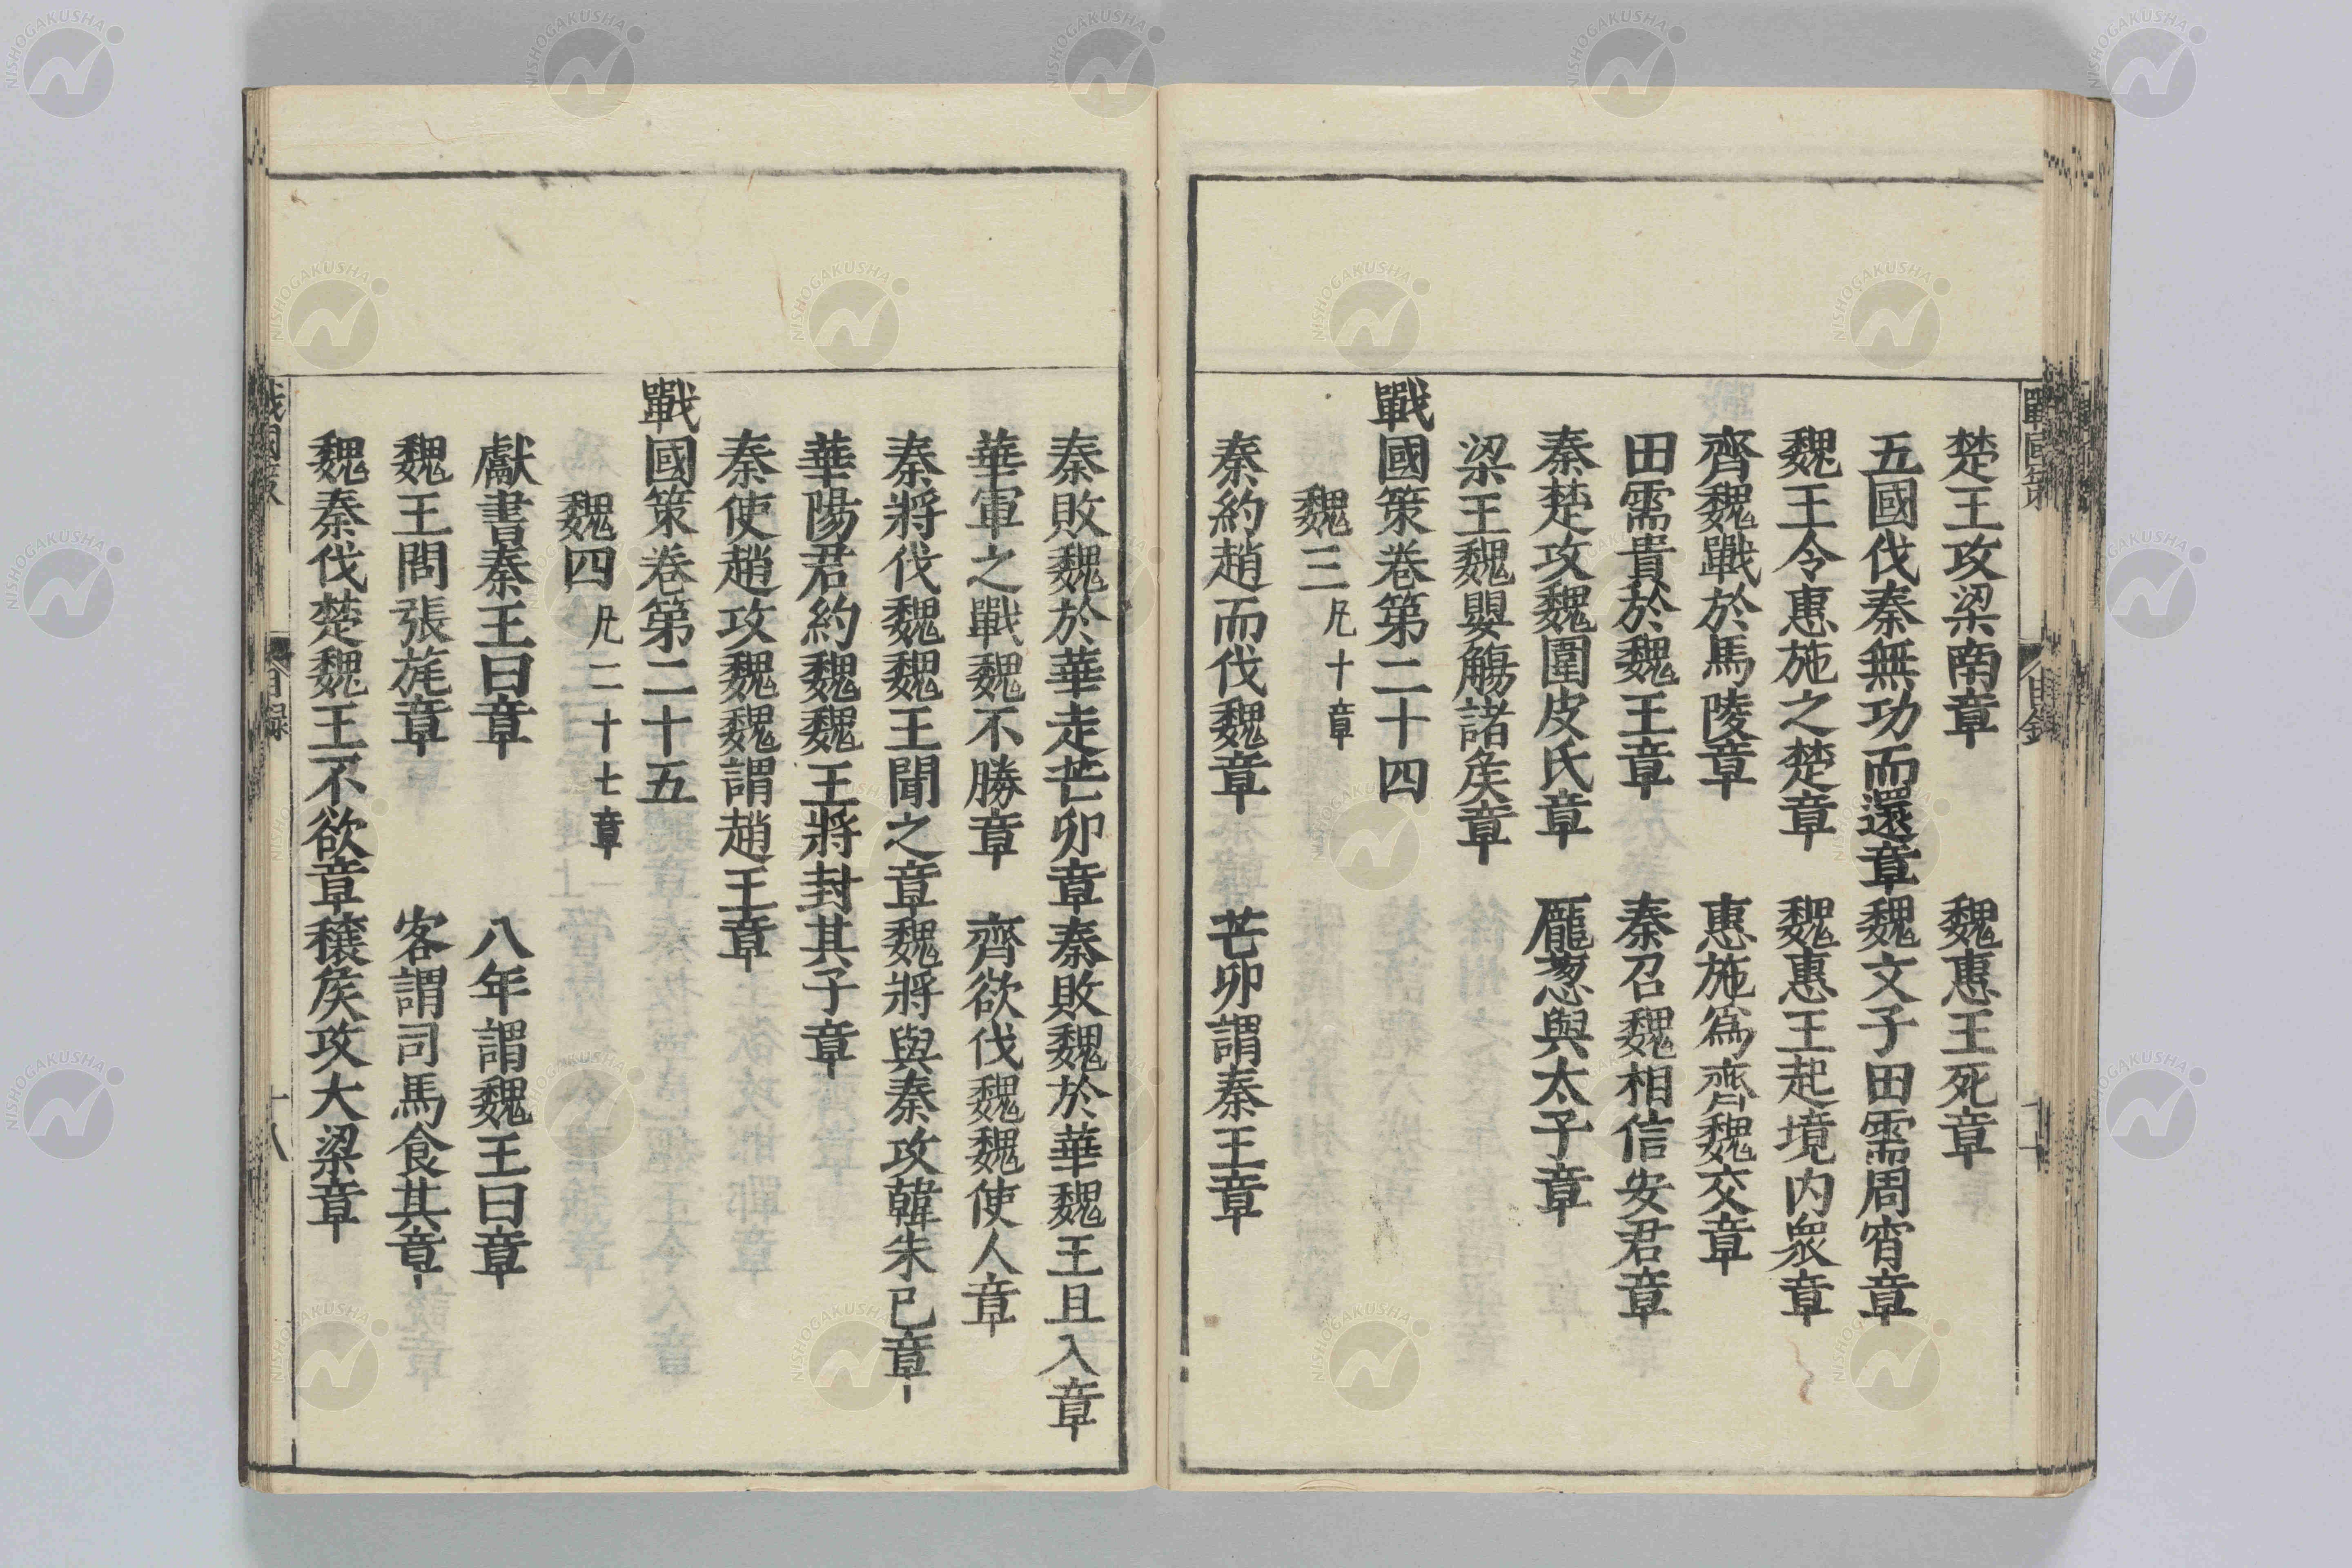 楚王攻梁南章　魏惠王死章
五國伐秦無功而還章魏文子田需周宵章
魏王令惠施之楚章　魏惠王起境内衆章
齊魏戰於馬陵章　惠施爲齊魏交章
田需貴於魏王章　秦召魏相信安君章
秦楚攻魏圍皮氏章　龐葱與太子章
梁王魏嬰觴諸矦章
戰國策卷第二十四
魏三凡十章
秦約趙而伐魏章　芒卯謂秦王章
秦敗魏於華走芒卯章秦敗魏於華魏王且入章
華軍之戰魏不勝章　齊欲伐魏魏使人章
秦將伐魏魏王聞之章魏將與秦攻韓朱已章
華陽君約魏魏王將封其子章
秦使趙攻魏魏謂趙王章
戰國策卷第二十五
魏四凡二十七章
獻書秦王曰章　八年謂魏王曰章
魏王問張旄章　客謂司馬食其章
魏秦伐楚魏王不欲章穰矦攻大梁章
戰國策　目錄　十八
NISHOGAKUSHA